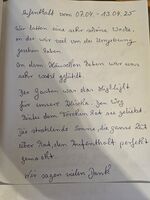 Aufenthalt vom 07.04. - 13.04.25
Wir hatten eine sehr schöne Woche,
in der wir viel von der Umgebung
gesehen haben.
In dem Häuschen haben wir uns
sehr wohl gefühlt.
Der Garten war das Highlight
für unsere
Vielen Dank
die strahlende Sonne, die ganze Zeit
über hat den Aufenthalt perfekt
gemacht.
Wir sagen vielen Dank!